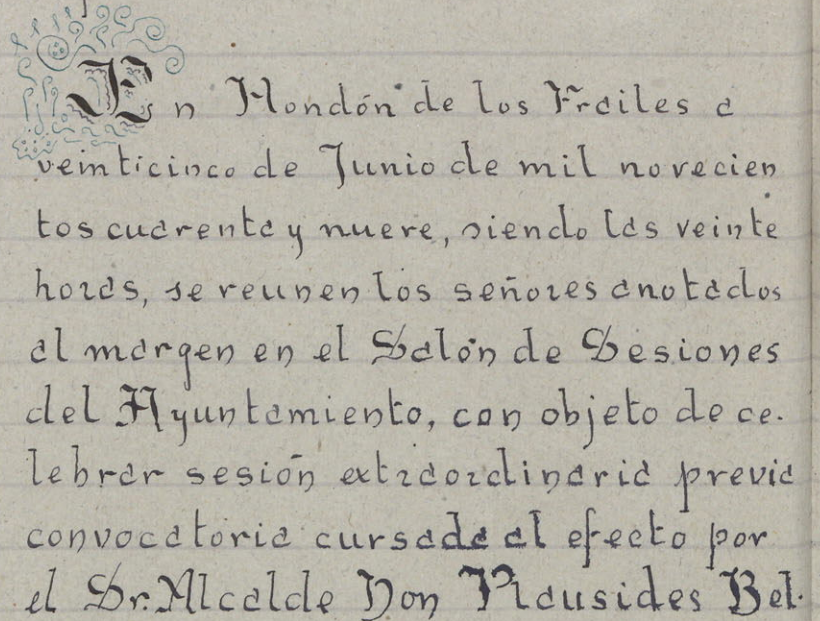 En Hondón de los Frailes a
veinticinco de Junio de mil novecien
tos cuarenta y nueve, siendo las veinte
horas, se reunen los señores anotados
al margen en el Salón de Sesiones
del Ayuntamiento, con objeto de ce-
lebrar sesión extraordinaria previa
convocatoria cursada al efecto por
el Sr. Alcalde Don Plausides Bel-